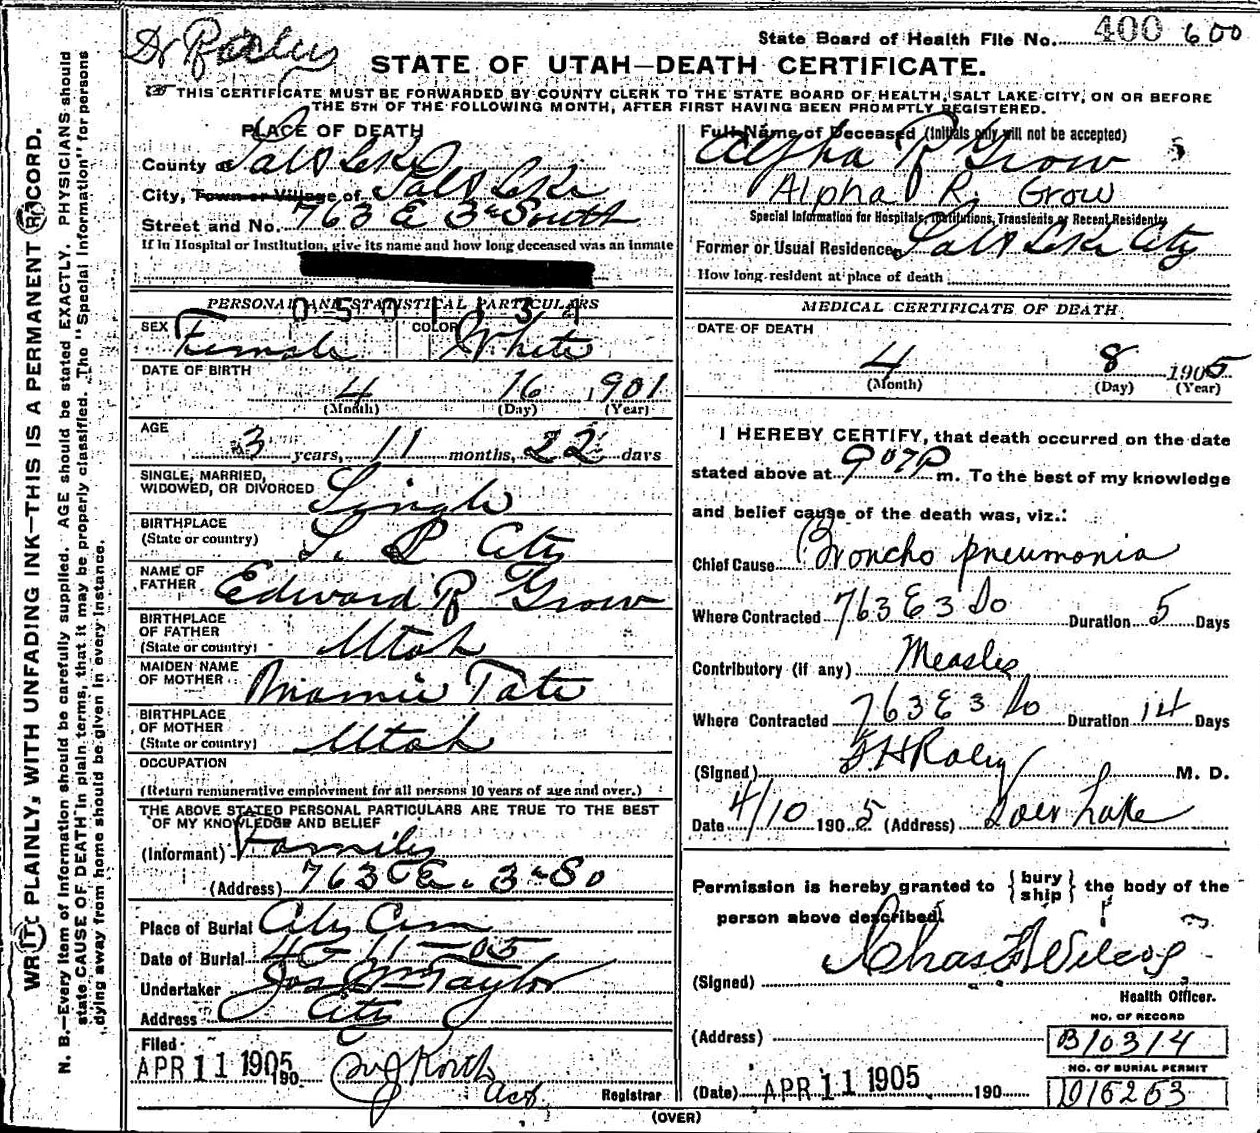 State Board of Health File No. 400 600
STATE OF UTAH—DEATH CERTIFICATE.
THIS CERTIFICATE MUST BE FORWARDED BY COUNTY CLERK TO THE STATE BOARD OF HEALTH, SALT LAKE CITY, ON OR BEFORE
THE 5TH OF THE FOLLOWING MONTH, AFTER FIRST HAVING BEEN PROMPTLY REGISTERED.
WRITE PLAINLY, WITH UNFADING INK—THIS IS A PERMANENT RECORD.
N. B.—Every item of information should be carefully supplied. AGE should be stated EXACTLY. PHYSICIANS should
state CAUSE OF DEATH in plain terms, that it may be properly classified. The "Special Information" for persons
dying away from home should be given in every instance.
PLACE OF DEATH
County of Salt Lake
City, Town or Village of Salt Lake
Street and No. 763 E 3rd South
If in Hospital or Institution, give its name and how long deceased was an inmate
PERSONAL AND STATISTICAL PARTICULARS
SEX Female COLOR White
DATE OF BIRTH 4 16 1901
(Month) (Day) (Year)
AGE 3 years, 11 months, 22 days
SINGLE, MARRIED,
WIDOWED, OR DIVORCED Single
BIRTHPLACE
(State or country) S. L City
NAME OF
FATHER Edward R Grow
BIRTHPLACE
OF FATHER
(State or country) Utah
MAIDEN NAME
OF MOTHER Mamie Tate
BIRTHPLACE
OF MOTHER
(State or country) Utah
OCCUPATION
(Return remunerative employment for all persons 10 years of age and over.)
THE ABOVE STATED PERSONAL PARTICULARS ARE TRUE TO THE BEST
OF MY KNOWLEDGE AND BELIEF
(Informant) Family
(Address) 763 E. 3rd So
Place of Burial City Cem
Date of Burial 4-11-05
Undertaker Jos Wm Taylor
Address City
Filed
APR 11 1905 190
Act Registrar
Full Name of Deceased (Initials only will not be accepted)
Alpha R Grow
Alpha R. Grow
Special Information for Hospitals, Institutions, Transients or Recent Residents
Former or Usual Residence Salt Lake City
How long resident at place of death
MEDICAL CERTIFICATE OF DEATH
DATE OF DEATH
4 8 1905
(Month) (Day) (Year)
I HEREBY CERTIFY, that death occurred on the date
stated above at 9 07 P m. To the best of my knowledge
and belief cause of the death was, viz.:
Chief Cause Broncho pneumonia
Where Contracted 763 E 3 So Duration 5 Days
Contributory (if any) Measles
Where Contracted 763 E 3 So Duration 14 Days
(Signed) Raley M. D.
Date 4/10 1905 (Address) Lake
Permission is hereby granted to { bury ship } the body of the
person above described.
(Signed) Chas F Wilcox
Health Officer.
(Address)
NO. OF RECORD
B10314
NO. OF BURIAL PERMIT
D16263
(Date) APR 11 1905 190
(OVER)